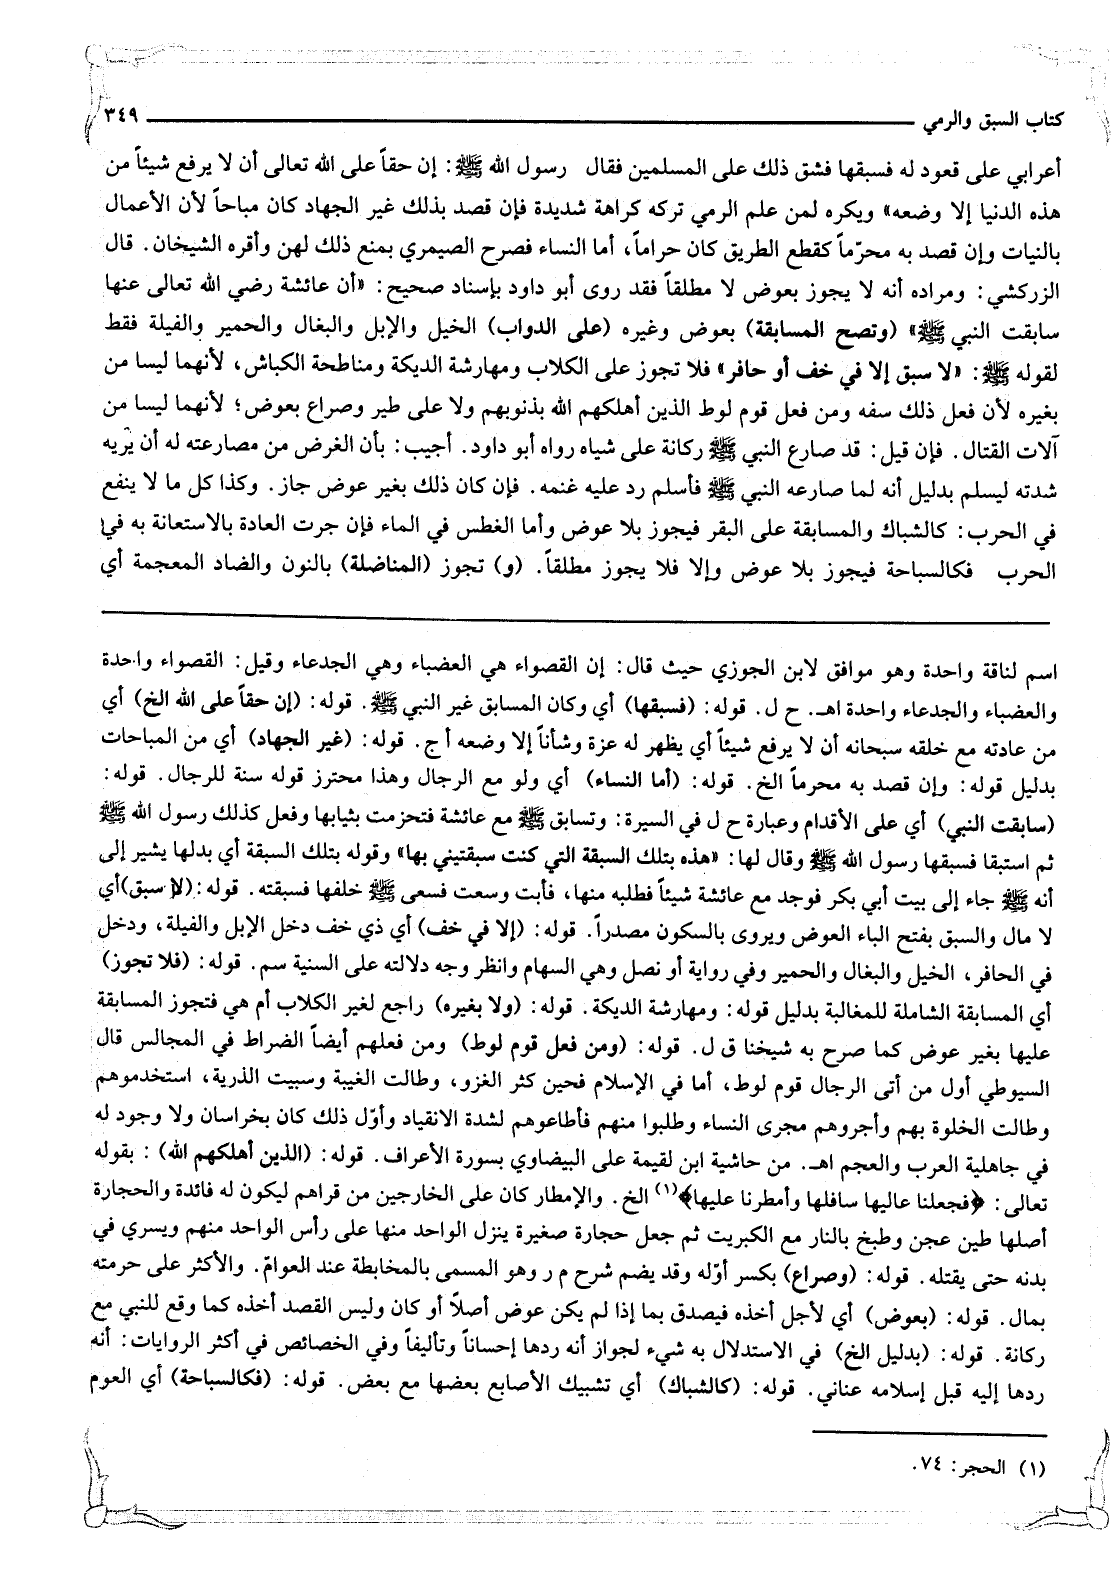 كتاب السبق والرمي ٣٤٩
أعرابي على قعود له فسبقها فشق ذلك على المسلمين فقال رسول الله ﷺ: إن حقاً على الله تعالى أن لا يرفع شيئاً من
هذه الدنيا إلا وضعه» ويكره لمن علم الرمي تركه كراهة شديدة فإن قصد بذلك غير الجهاد كان مباحاً لأن الأعمال
بالنيات وإن قصد به محرّماً كقطع الطريق كان حراماً، أما النساء فصرح الصيمري بمنع ذلك لهن وأقره الشيخان. قال
الزركشي: ومراده أنه لا يجوز بعوض لا مطلقاً فقد روى أبو داود بإسناد صحيح: «أن عائشة رضي الله تعالى عنها
سابقت النبي ﷺ» (وتصح المسابقة) بعوض وغيره (على الدواب) الخيل والإبل والبغال والحمير والفيلة فقط
لقوله ﷺ: «لا سبق إلا في خف أو حافر» فلا تجوز على الكلاب ومهارشة الديكة ومناطحة الكباش، لأنهما ليسا من
بغيره لأن فعل ذلك سفه ومن فعل قوم لوط الذين أهلكهم الله بذنوبهم ولا على طير وصراع بعوض؛ لأنهما ليسا من
آلات القتال. فإن قيل: قد صارع النبي ﷺ ركانة على شياه رواه أبو داود. أجيب: بأن الغرض من مصارعته له أن يريه
شدته ليسلم بدليل أنه لما صارعه النبي ﷺ فأسلم رد عليه غنمه. فإن كان ذلك بغير عوض جاز. وكذا كل ما لا ينفع
في الحرب: كالشباك والمسابقة على البقر فيجوز بلا عوض وأما الغطس في الماء فإن جرت العادة بالاستعانة به في
الحرب فكالسباحة فيجوز بلا عوض وإلا فلا يجوز مطلقاً. (و) تجوز (المناضلة) بالنون والضاد المعجمة أي
اسم لناقة واحدة وهو موافق لابن الجوزي حيث قال: إن القصواء هي العضباء وهي الجدعاء وقيل: القصواء واحدة
والعضباء والجدعاء واحدة اهـ. ح ل. قوله: (فسبقها) أي وكان المسابق غير النبي ﷺ. قوله: (إن حقاً على الله الخ) أي
من عادته مع خلقه سبحانه أن لا يرفع شيئاً أي يظهر له عزة وشأناً إلا وضعه أ ج. قوله: (غير الجهاد) أي من المباحات
بدليل قوله: وإن قصد به محرماً الخ. قوله: (أما النساء) أي ولو مع الرجال وهذا محترز قوله سنة للرجال. قوله:
(سابقت النبي) أي على الأقدام وعبارة ح ل في السيرة: وتسابق ﷺ مع عائشة فتحزمت بثيابها وفعل كذلك رسول الله ﷺ
ثم استبقا فسبقها رسول الله ﷺ وقال لها: «هذه بتلك السبقة التي كنت سبقتيني بها» وقوله بتلك السبقة أي بدلها يشير إلى
أنه ﷺ جاء إلى بيت أبي بكر فوجد مع عائشة شيئاً فطلبه منها، فأبت وسعت فسعى ﷺ خلفها فسبقته. قوله: (لا سبق) أي
لا مال والسبق بفتح الباء العوض ويروى بالسكون مصدراً. قوله: (إلا في خف) أي ذي خف دخل الإبل والفيلة، ودخل
في الحافر، الخيل والبغال والحمير وفي رواية أو نصل وهي السهام وانظر وجه دلالته على السنية سم. قوله: (فلا تجوز)
أي المسابقة الشاملة للمغالبة بدليل قوله: ومهارشة الديكة. قوله: (ولا بغيره) راجع لغير الكلاب أم هي فتجوز المسابقة
عليها بغير عوض كما صرح به شيخنا ق ل. قوله: (ومن فعل قوم لوط) ومن فعلهم أيضاً الضراط في المجالس قال
السيوطي أول من أتى الرجال قوم لوط، أما في الإسلام فحين كثر الغزو، وطالت الغيبة وسبيت الذرية، استخدموهم
وطالت الخلوة بهم وأجروهم مجرى النساء وطلبوا منهم فأطاعوهم لشدة الانقياد وأوّل ذلك كان بخراسان ولا وجود له
في جاهلية العرب والعجم اهـ. من حاشية ابن لقيمة على البيضاوي بسورة الأعراف. قوله: (الذين أهلكهم الله) : بقوله
تعالى: ﴿فجعلنا عاليها سافلها وأمطرنا عليها﴾(١) الخ. والإمطار كان على الخارجين من قراهم ليكون له فائدة والحجارة
أصلها طين عجن وطبخ بالنار مع الكبريت ثم جعل حجارة صغيرة ينزل الواحد منها على رأس الواحد منهم ويسري في
بدنه حتى يقتله. قوله: (وصراع) بكسر أوّله وقد يضم شرح م ر وهو المسمى بالمخابطة عند العوامّ. والأكثر على حرمته
بمال. قوله: (بعوض) أي لأجل أخذه فيصدق بما إذا لم يكن عوض أصلاً أو كان وليس القصد أخذه كما وقع للنبي مع
ركانة. قوله: (بدليل الخ) في الاستدلال به شيء لجواز أنه ردها إحساناً وتأليفاً وفي الخصائص في أكثر الروايات: أنه
ردها إليه قبل إسلامه عناني. قوله: (كالشباك) أي تشبيك الأصابع بعضها مع بعض. قوله: (فكالسباحة) أي العوم
(١) الحجر: ٧٤.